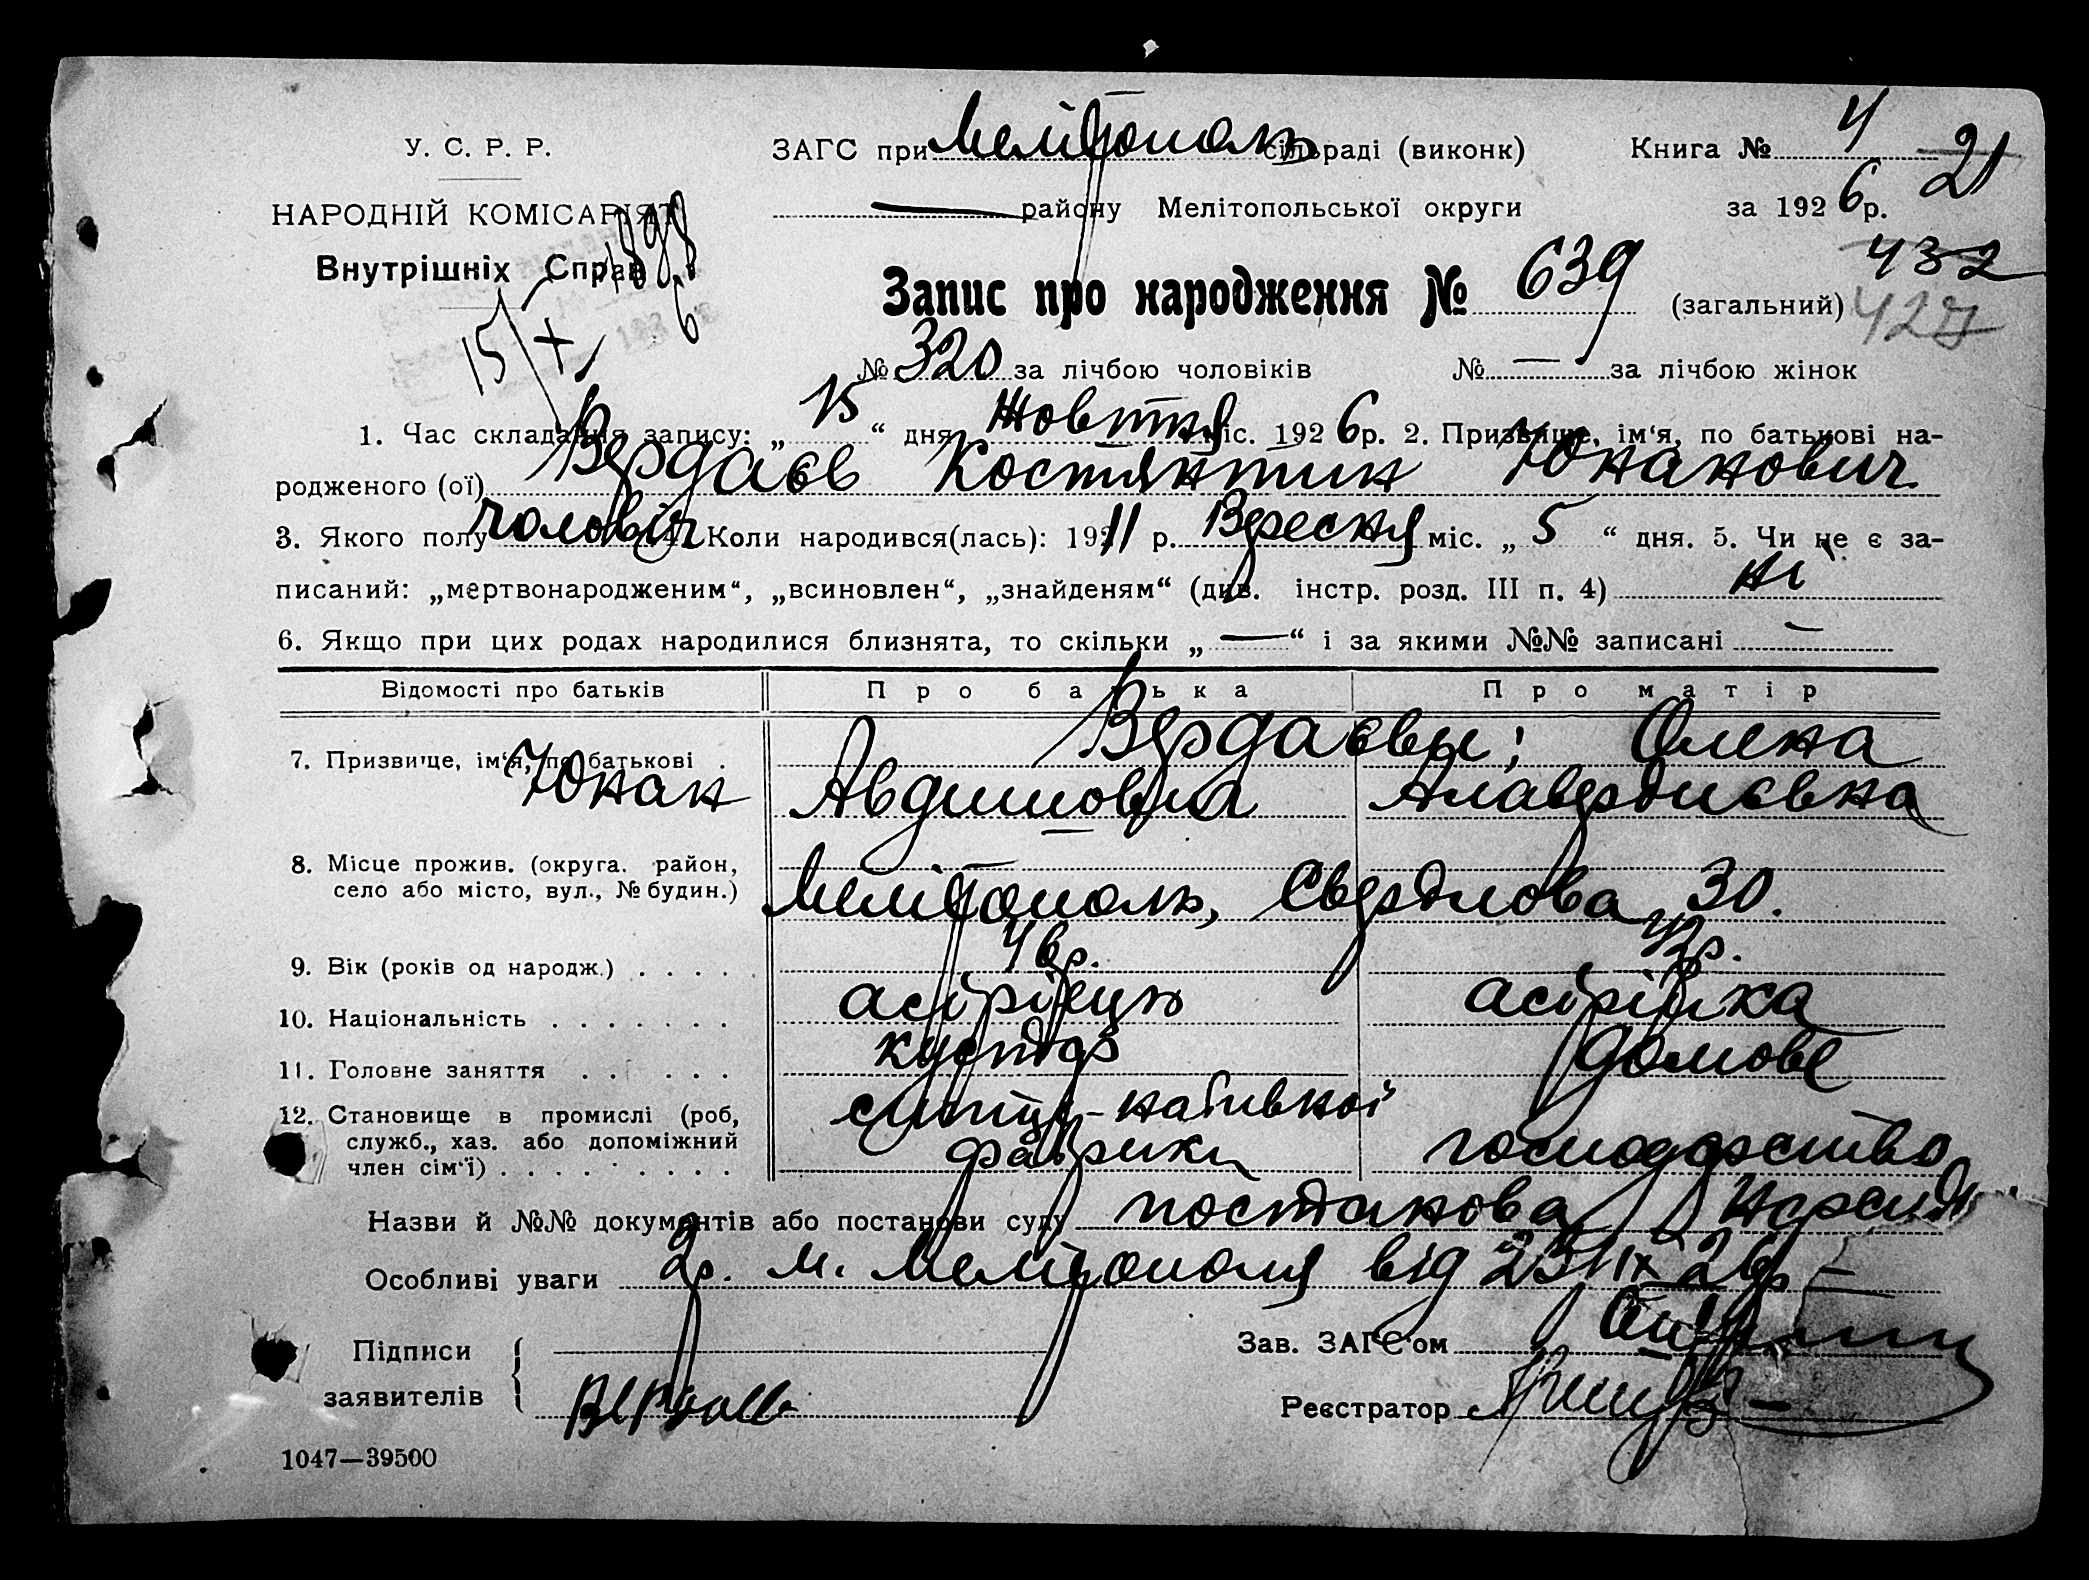 У. С. Р. Р.
НАРОДНІЙ КОМІСАРІЯТ
Внутрішніх Справ
1898
15/X
6
ЗАГС при Мелітополь сільраді (виконк)
— району Мелітопольської округи
Книга № 4
21
за 1926 р.
432
427
Запис про народження № 639 (загальний)
№ 320 за лічбою чоловіків № — за лічбою жінок
1. Час складання запису: „15“ дня Жовтня міс. 1926 р. 2. Призвище, ім‘я, по батькові на-
родженого (ої) Вердаєв Костянтин Юнанович
3. Якого полу чоловіч 4. Коли народився(лась): 1911 р. Вересня міс. „5“ дня. 5. Чи не є за-
писаний: „мертвонародженим“, „всиновлен“, „знайденям“ (див. інстр. розд. III п. 4) ні
6. Якщо при цих родах народилися близнята, то скільки „—“ і за якими №№ записані —
Відомості про батьків Про батька Про матір
7. Призвище, ім‘я, по батькові . Вердаєвы; Олена
Юнан Авдишович Алавердиєвна
8. Місце прожив. (округа. район,
село або місто, вул., № будин.) Мелітополь, Свердлова 30.
9. Вік (років од народж.) . . . . . 46р. 42р.
10. Національність . . . . . . . асірієць асірійка
11. Головне заняття . . . . . . кустар домове
12. Становище в промислі (роб,
служб., хаз. або допоміжний
член сім‘ї) . . . . . . . . . -набивної
фабрики господарство
Назви й №№ документів або постанови суду постанова Нарсуд
Особливі уваги 2р. м. Мелітополя від 23/IX 26р —
Підписи
заявителів
Зав. ЗАГС‘ом
Реєстратор
1047—39500